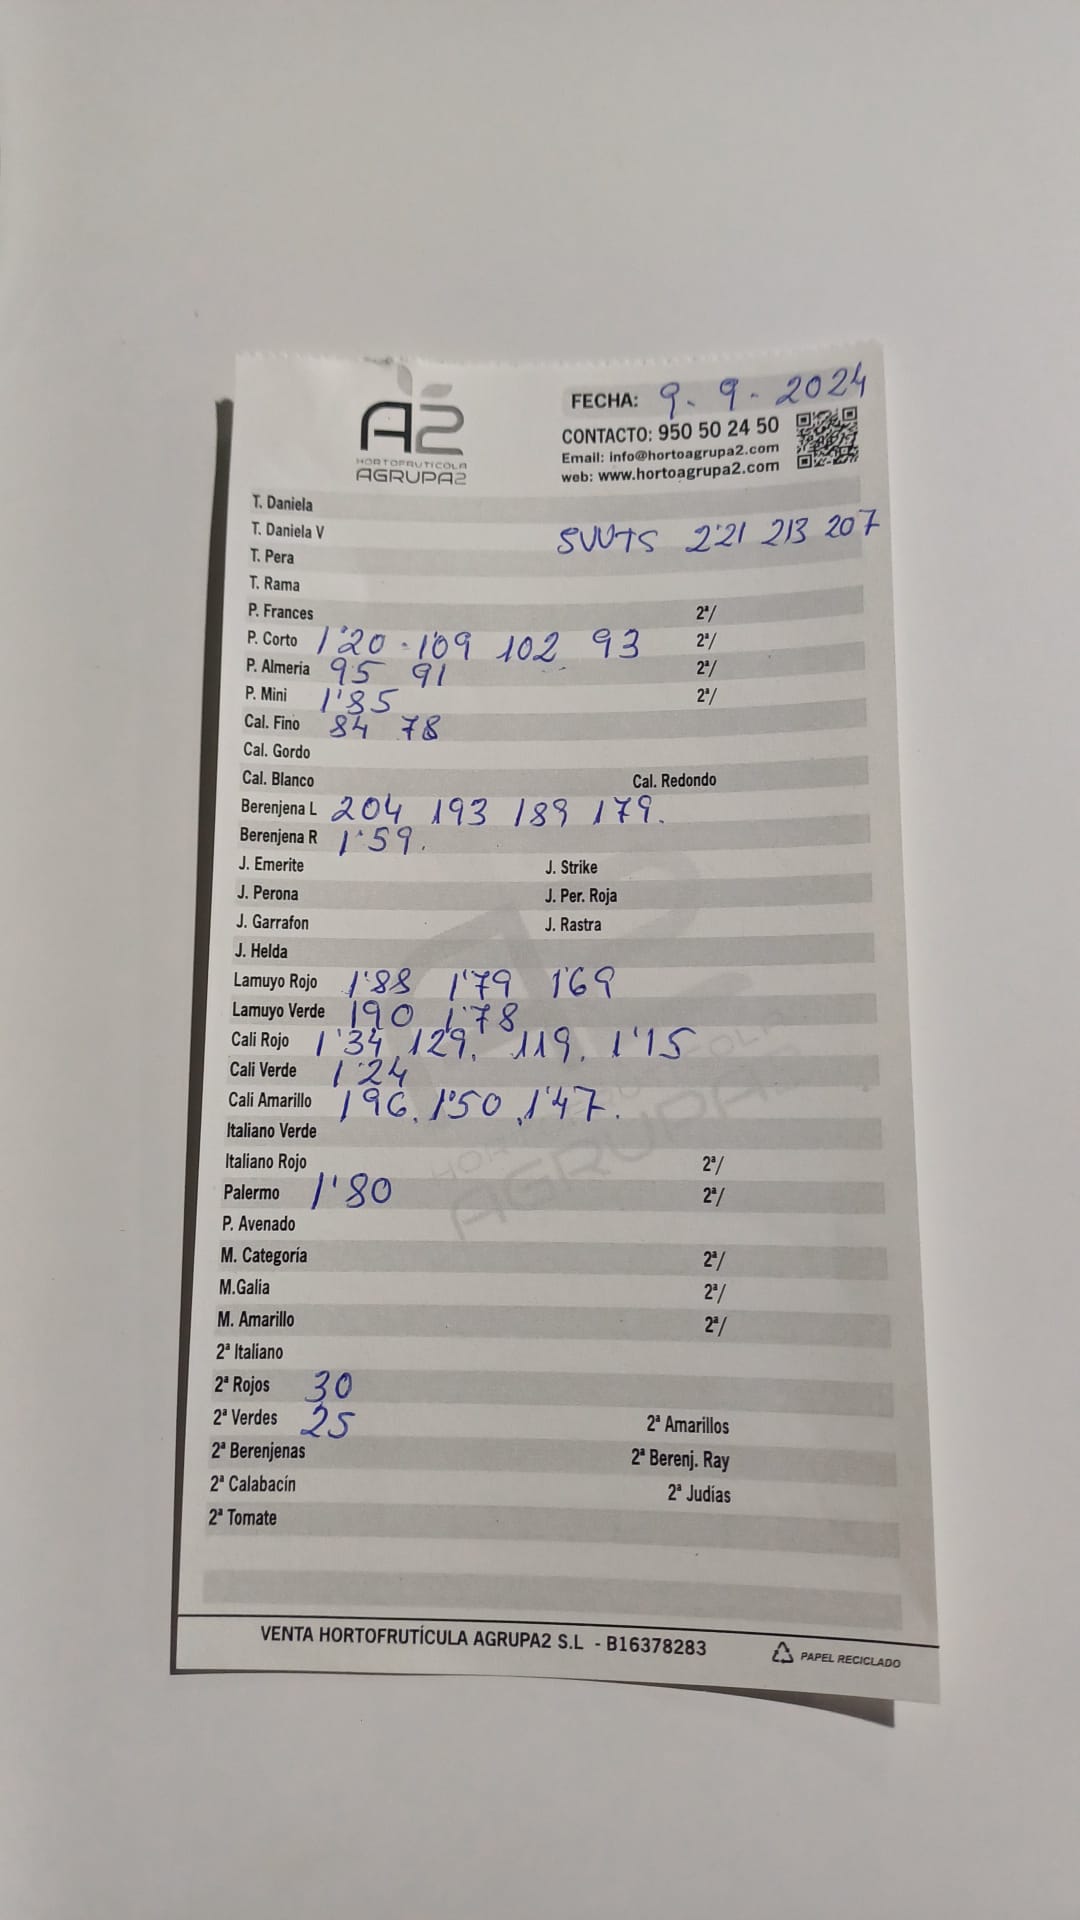 A2
HORTOFRUTICOLA
AGRUPA2
FECHA: 9-9-2024
CONTACTO: 950 50 24 50
Email: info@hortoagrupa2.com
web: www.hortoagrupa2.com
T. Daniela
T. Daniela V SVVTS 2'21 213 207
T. Pera
T. Rama
P. Frances 2ª/
P. Corto 1'20 - 1'09 102 93 2ª/
P. Almería 95 91 2ª/
P. Mini 1'85 2ª/
Cal. Fino 84 78
Cal. Gordo
Cal. Blanco Cal. Redondo
Berenjena L 204 193 189 179.
Berenjena R 1'59.
J. Emerite J. Strike
J. Perona J. Per. Roja
J. Garrafon J. Rastra
J. Helda
Lamuyo Rojo 1'88 1'79 1'69
Lamuyo Verde 190 1'78
Cali Rojo 1'34, 129, 119, 1'15
Cali Verde 1'24
Cali Amarillo 196, 1'50, 1'47.
Italiano Verde
Italiano Rojo 2ª/
Palermo 1'80 2ª/
P. Avenado
M. Categoría 2ª/
M.Galia 2ª/
M. Amarillo 2ª/
2ª Italiano
2ª Rojos 30
2ª Verdes 25 2ª Amarillos
2ª Berenjenas 2ª Berenj. Ray
2ª Calabacín 2ª Judías
2ª Tomate
VENTA HORTOFRUTÍCULA AGRUPA2 S.L - B16378283
PAPEL RECICLADO